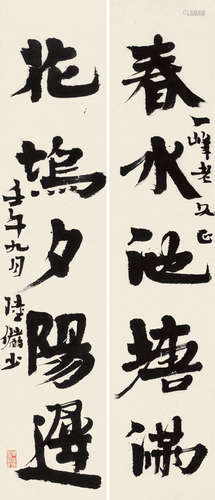 春水池塘滿
一峰老正
花塢夕陽遲
壬午九月
陸儼少